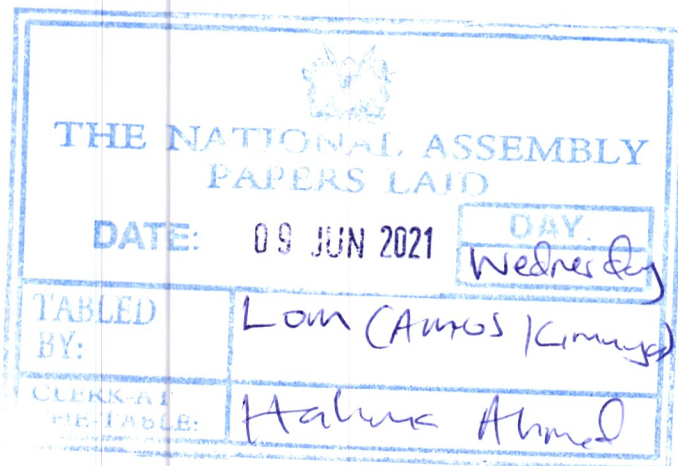 THE NATIONAL ASSEMBLY
PAPERS LAID
DATE: 09 JUN 2021 DAY.
Wednesday
TABLED BY: LOM (Amos Kimunya)
CLERK-AT THE-TABLE: Ahmed